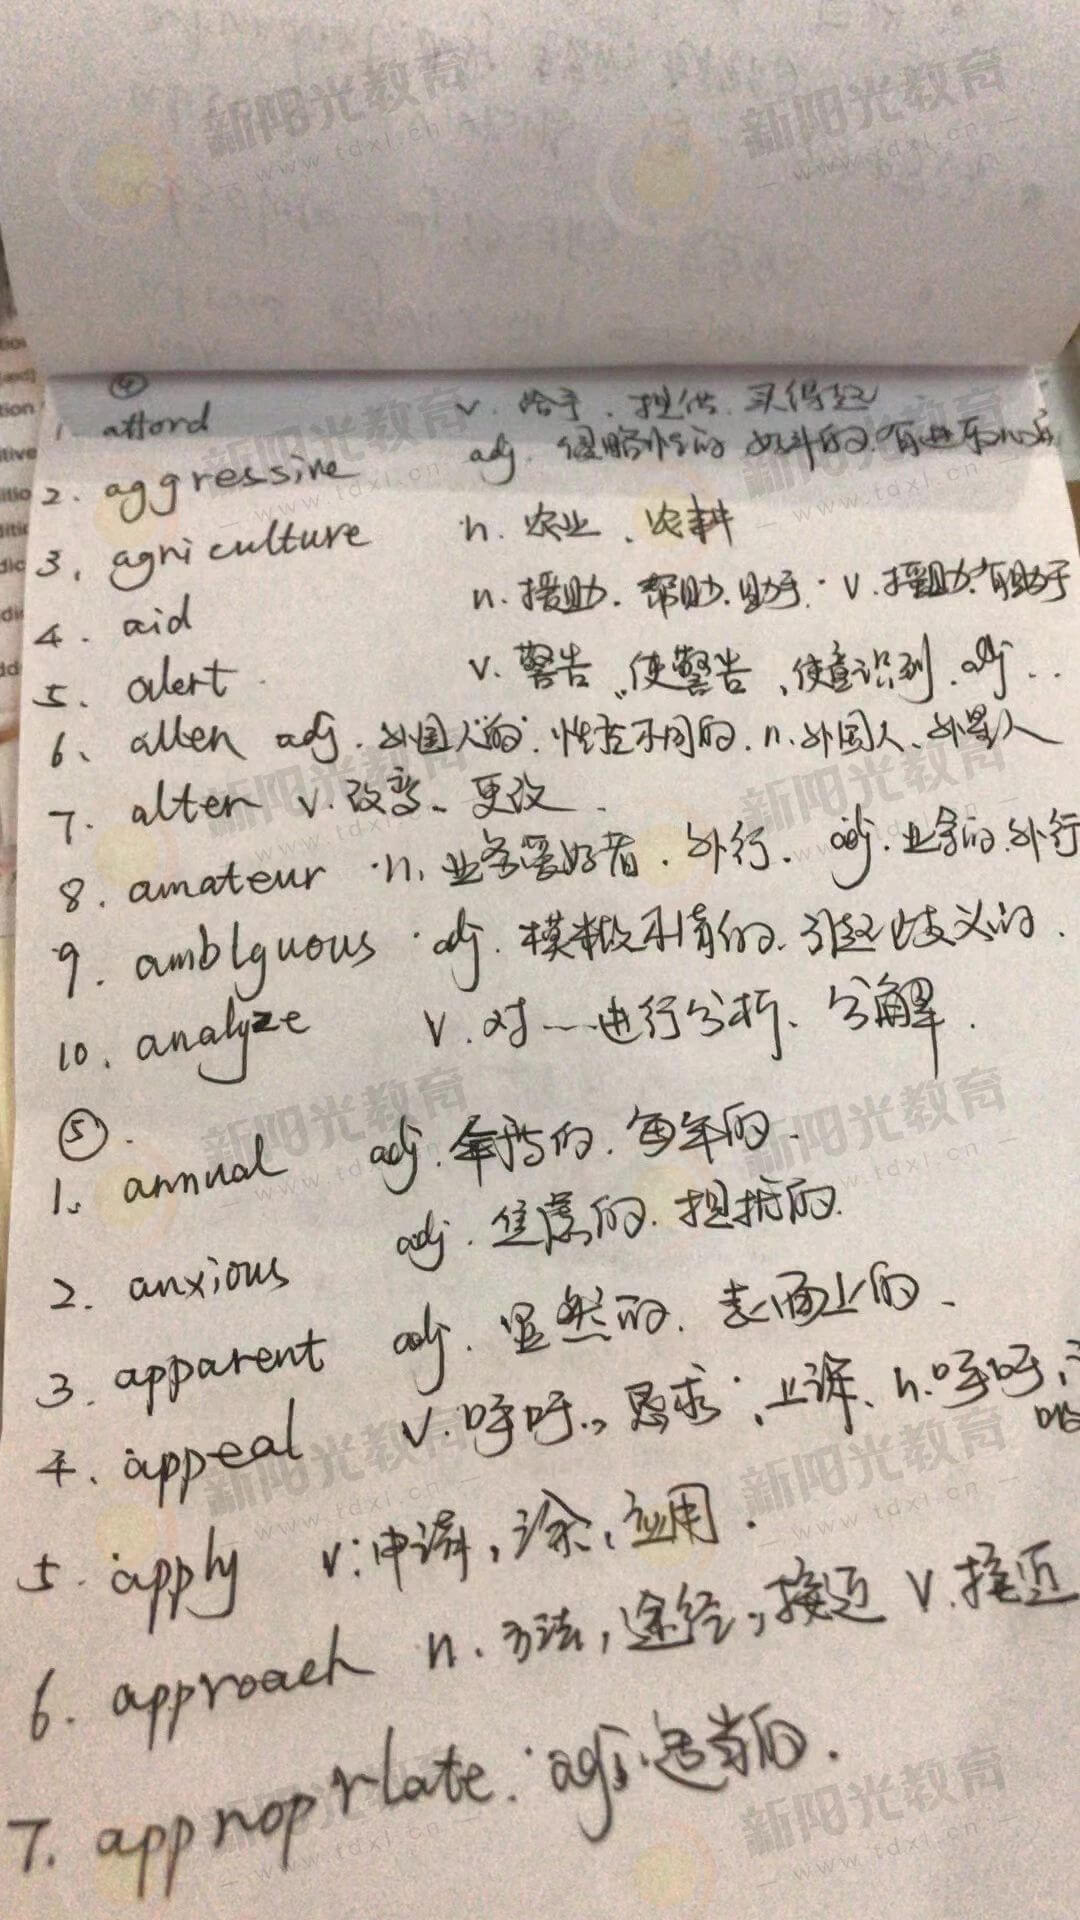 ④
1. afford v. 给予. 提供. 买得起
2. aggressive adj. 侵略性的 好斗的. 有进取心的
3. agriculture n. 农业、农耕
4. aid n. 援助. 帮助. 助手. v. 援助. 有助于
5. alert v. 警告、使警告、使意识到. adj...
6、allen adj. 外国人的. 性质不同的. n. 外国人、外星人
7. alter v. 改变、更改.
8. amateur n. 业余爱好者. 外行. adj. 业余的. 外行
9. amblguous adj. 模糊不清的. 引起歧义的.
10. analyze v. 对……进行分析、分解.
⑤.
1. annual adj. 年度的. 每年的.
2. anxious adj. 焦虑的. 担忧的.
3. apparent adj. 显然的. 表面上的.
4. appeal v. 呼吁., 恳求, 上诉、n. 呼吁,
5. apply v. 申请, 涂, 应用.
6. approach n. 方法, 途径, 接近 v. 接近
7. approprlate. adj. 适当的.
新阳光教育
www.tdxl.cn